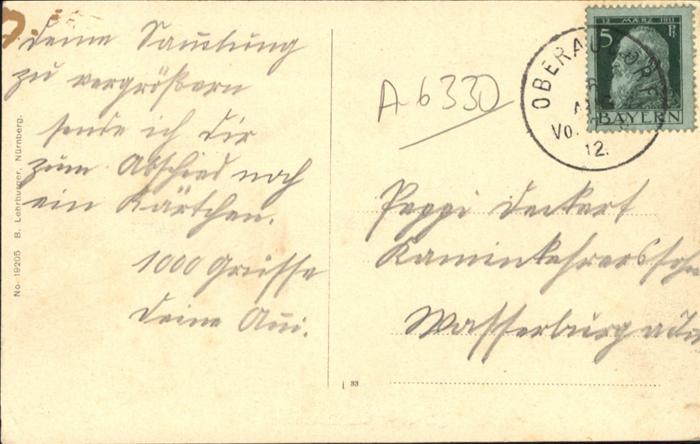 Deine Samlung
zu vergrößern
sende ich dir
zum Abschied noch
ein Kärtchen.
1000 Grüsse
Deine
No. 19205 B. Lehrburger, Nürnberg.
A 6330
12. MÄRZ 1911
5 Pf
BAYERN
OBERAUDORF
6
AUG
Vo.
12.
Peppi Deckert
Kaminkehrerssohn
Wasserburg a/Inn
j 33